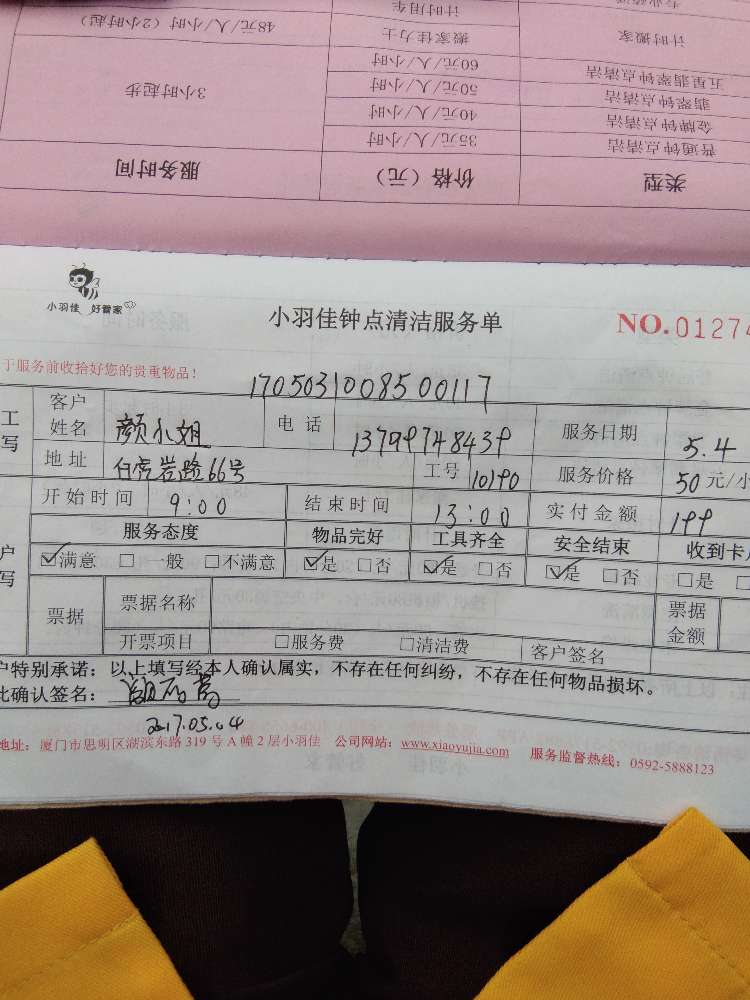 类型 价格（元） 服务时间
普通钟点清洁 35元/人/小时 3小时起步
金牌钟点清洁 40元/人/小时
翡翠钟点清洁 50元/人/小时
五星翡翠钟点清洁 60元/人/小时
计时搬家 搬家佳力士 48元/人/小时（2小时起）
计时用车
小羽佳 好管家
小羽佳钟点清洁服务单
NO.01274
于服务前收拾好您的贵重物品！
1705031008500117
工 写
客户姓名 颜小姐 电话 13799748439 服务日期 5.4
地址 白虎岩路66号 工号 10190 服务价格 50元/小
开始时间 9:00 结束时间 13:00 实付金额 199
户 写
服务态度 物品完好 工具齐全 安全结束 收到卡
☑满意 □一般 □不满意 ☑是 □否 ☑是 □否 ☑是 □否 □是
票据 票据名称 票据金额
开票项目 □服务费 □清洁费 客户签名
户特别承诺：以上填写经本人确认属实，不存在任何纠纷，不存在任何物品损坏。
此确认签名：
2017.05.04
地址：厦门市思明区湖滨东路319号A幢2层小羽佳 公司网站：www.xiaoyujia.com 服务监督热线：0592-5888123